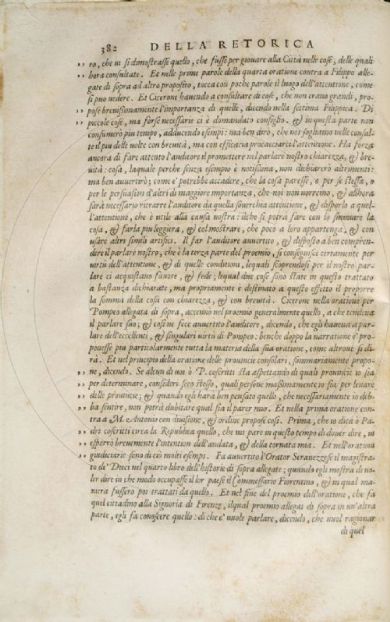 382 DELLA RETORICA
ro, che ui si dimostrasse quello, che fusse per giouare alla Città nelle cose, delle quali
hora consultate. Et nelle prime parole della quarta oratione contra a Filippo alle-
gate di sopra ad altro proposito, tocca con poche parole il luogo dell'attentione, come
si può uedere. Et Cicerone hauendo a consultare di cose, che non erano grandi, pro-
pose breuissimamente l'importanza di quelle, dicendo nella settima Filippica. Di
piccole cose, ma forse necessarie ci è domandato consiglio. & in questa parte non
consumerò piu tempo, adducendo esempi: ma ben dirò, che noi sogliamo nelle consul-
te il piu delle uolte con breuità, ma con efficacia procacciarci l'attentione. Ha forza
ancora di fare attento l'auditore il promettere nel parlare nostro chiarezza, & bre-
uità: cosa, laquale perche senza esempio è notissima, non dichiarerò altrimenti:
ma ben auuertirò, come e' potrebbe accadere, che la cosa paresse, o per se stessa, o
per le persuasioni d'altri di maggiore importanza, che noi non uorremo, & allhora
sarà necessario ritrarre l'auditore da quella souerchia attentione, & disporlo a quel-
l'attentione, che è utile alla causa nostra: ilche si potrà fare con lo sminuire la
cosa, & farla piu leggiera, & col mostrare, che poco a loro appartenga, & con
usare altri simili artifici. Il far l'auditore auuertito, & disposto a ben compren-
dere il parlare nostro, che è la terza parte del proemio, si conseguisce certamente per
uertù dell'attentione, & di quelle conditioni, lequali scoprendosi per il nostro par-
lare ci acquistano fauore, & fede, lequai due cose sono state in questo trattato
a bastanza dichiarate, ma propriamente è destinato a questo effetto il proporre
la somma della cosa con chiarezza, & con breuità. Cicerone nella oratione per
Pompeo allegata di sopra, accennò nel proemio generalmente quello, a che tendeua
il parlare suo; & così ui fece auuertito l'auditore, dicendo, che egli haueua a par-
lare dell'eccellenti, & singulari uertù di Pompeo: benche doppo la narratione e' pro-
ponesse piu particularmente tutta la materia della sua oratione, come altroue si di-
rà. Et nel principio della oratione delle prouincie consolari, sommariamente propo-
ne, dicendo. Se alcun di uoi ò P. coscritti sta aspettando di quali prouincie io sia
per determinare, consideri seco stesso, quali persone massimamente io sia per leuare
delle prouincie; & quando egli harà ben pensato quello, che necessariamente io deb-
ba sentire, non potrà dubitare qual sia il parer mio. Et nella prima oratione con-
tra a M. Antonio con inuisione, & ordine propose così. Prima, che io dica ò Pa-
dri coscritti circa la Republica quello, che mi pare in questo tempo di douer dire, ui
esporrò breuemente l'intention dell'andata, & della tornata mia. Et nell'orationi
giudiciarie sono di ciò molti esempi. Fa auuertito l'Orator Serauezzese il magistra-
to de' Dieci nel quarto libro dell'historie di sopra allegate; quando egli mostra di uo-
ler dire in che modo occupasse il lor paese il Commessario Fiorentino, & in qual ma-
niera fussero poi trattati da quello. Et nel fine del proemio dell'oratione, che fa
quel cittadino alla Signoria di Firenze, ilqual proemio allegai di sopra in un'altra
parte, egli fa conoscere quello: di che e' uuole parlare, dicendo, che uuol ragionar
di quel